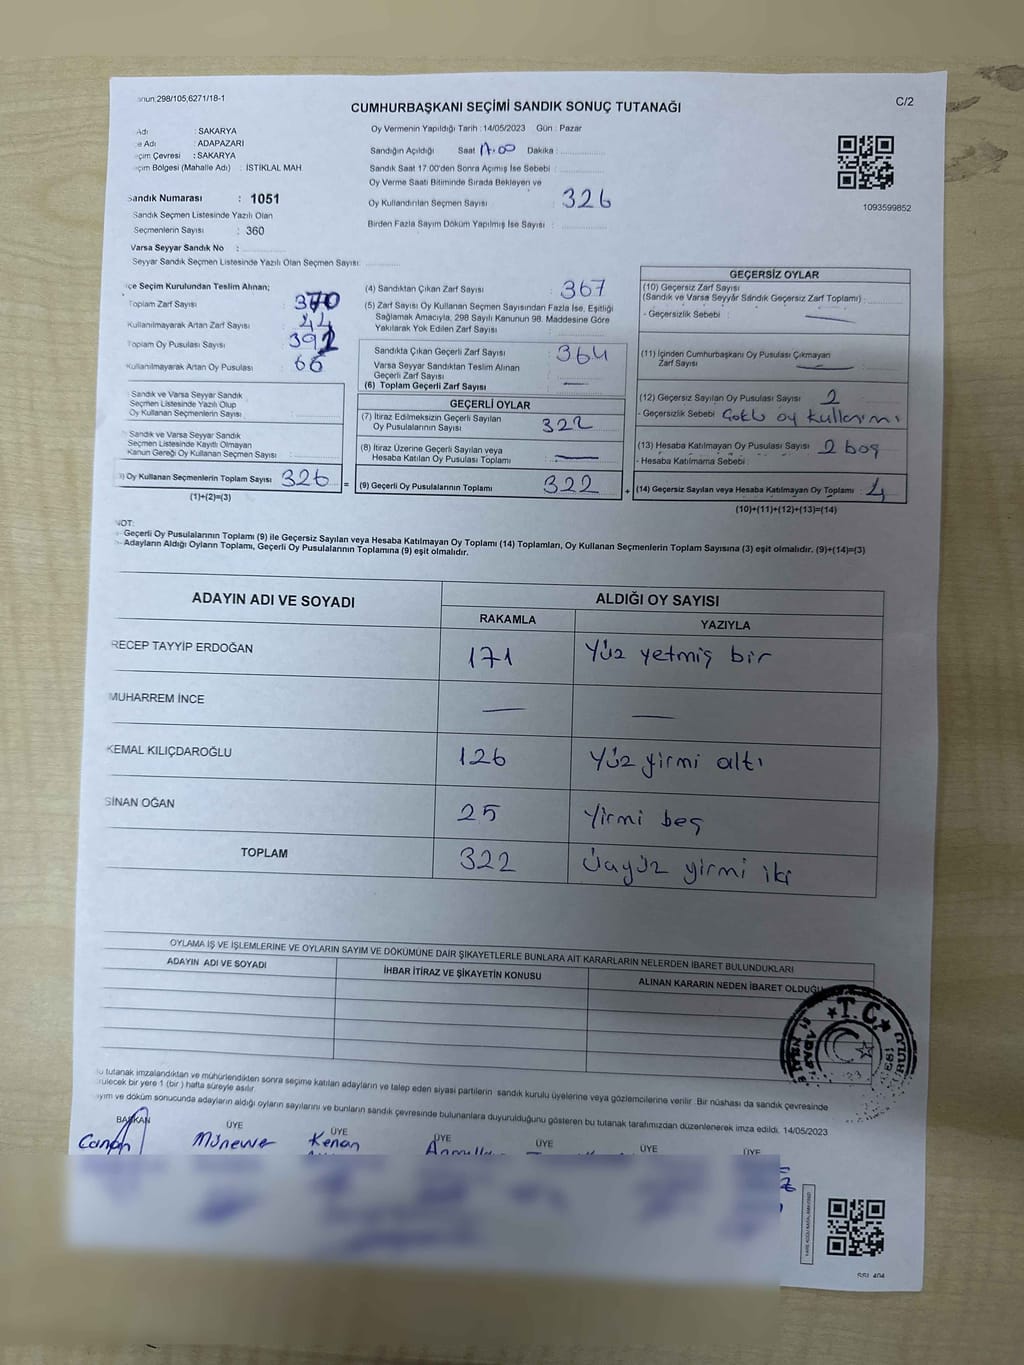 anun,298/105,6271/18-1
C/2
CUMHURBAŞKANI SEÇİMİ SANDIK SONUÇ TUTANAĞI
Adı : SAKARYA
e Adı : ADAPAZARI
çim Çevresi : SAKARYA
çim Bölgesi (Mahalle Adı) : İSTİKLAL MAH
Sandık Numarası : 1051
Sandık Seçmen Listesinde Yazılı Olan
Seçmenlerin Sayısı : 360
Varsa Seyyar Sandık No :
Seyyar Sandık Seçmen Listesinde Yazılı Olan Seçmen Sayısı:
Oy Vermenin Yapıldığı Tarih : 14/05/2023 Gün : Pazar
Sandığın Açıldığı Saat 17.00 Dakika :
Sandık Saat 17:00'den Sonra Açımış İse Sebebi :
Oy Verme Saati Bitiminde Sırada Bekleyen ve
Oy Kullandırılan Seçmen Sayısı : 326
Birden Fazla Sayım Döküm Yapılmış İse Sayısı :
1093599852
çe Seçim Kurulundan Teslim Alınan;
Toplam Zarf Sayısı : 370
Kullanılmayarak Artan Zarf Sayısı : 44
Toplam Oy Pusulası Sayısı : 392
Kullanılmayarak Artan Oy Pusulası : 66
Sandık ve Varsa Seyyar Sandık
Seçmen Listesinde Yazılı Olup
Oy Kullanan Seçmenlerin Sayısı :
Sandık ve Varsa Seyyar Sandık
Seçmen Listesinde Kayıtlı Olmayan
Kanun Gereği Oy Kullanan Seçmen Sayısı :
) Oy Kullanan Seçmenlerin Toplam Sayısı : 326
(1)+(2)=(3)
(4) Sandıktan Çıkan Zarf Sayısı : 367
(5) Zarf Sayısı Oy Kullanan Seçmen Sayısından Fazla İse, Eşitliği
Sağlamak Amacıyla, 298 Sayılı Kanunun 98. Maddesine Göre
Yakılarak Yok Edilen Zarf Sayısı :
Sandıkta Çıkan Geçerli Zarf Sayısı : 364
Varsa Seyyar Sandıktan Teslim Alınan
Geçerli Zarf Sayısı :
(6) Toplam Geçerli Zarf Sayısı : —
GEÇERLİ OYLAR
(7) İtiraz Edilmeksizin Geçerli Sayılan
Oy Pusulalarının Sayısı : 322
(8) İtiraz Üzerine Geçerli Sayılan veya
Hesaba Katılan Oy Pusulası Toplamı : —
= (9) Geçerli Oy Pusulalarının Toplamı 322 +
GEÇERSİZ OYLAR
(10) Geçersiz Zarf Sayısı
(Sandık ve Varsa Seyyâr Sandık Geçersiz Zarf Toplamı) :
- Geçersizlik Sebebi : —
(11) İçinden Cumhurbaşkanı Oy Pusulası Çıkmayan
Zarf Sayısı : —
(12) Geçersiz Sayılan Oy Pusulası Sayısı : 2
- Geçersizlik Sebebi Çoklu oy kullanımı
(13) Hesaba Katılmayan Oy Pusulası Sayısı : 2 boş
- Hesaba Katılmama Sebebi :
(14) Geçersiz Sayılan veya Hesaba Katılmayan Oy Toplamı : 4
(10)+(11)+(12)+(13)=(14)
NOT:
- Geçerli Oy Pusulalarının Toplamı (9) ile Geçersiz Sayılan veya Hesaba Katılmayan Oy Toplamı (14) Toplamları, Oy Kullanan Seçmenlerin Toplam Sayısına (3) eşit olmalıdır. (9)+(14)=(3)
- Adayların Aldığı Oyların Toplamı, Geçerli Oy Pusulalarının Toplamına (9) eşit olmalıdır.
ADAYIN ADI VE SOYADI
ALDIĞI OY SAYISI
RAKAMLA YAZIYLA
RECEP TAYYİP ERDOĞAN 171 Yüz yetmiş bir
MUHARREM İNCE — —
KEMAL KILIÇDAROĞLU 126 Yüz yirmi altı
SİNAN OĞAN 25 Yirmi beş
TOPLAM 322 Üçyüz yirmi iki
OYLAMA İŞ VE İŞLEMLERİNE VE OYLARIN SAYIM VE DÖKÜMÜNE DAİR ŞİKAYETLERLE BUNLARA AİT KARARLARIN NELERDEN İBARET BULUNDUKLARI
ADAYIN ADI VE SOYADI İHBAR İTİRAZ VE ŞİKAYETİN KONUSU ALINAN KARARIN NEDEN İBARET OLDUĞU
T.C.
u tutanak imzalandıktan ve mühürlendikten sonra seçime katılan adayların ve talep eden siyasi partilerin sandık kurulu üyelerine veya gözlemcilerine verilir. Bir nüshası da sandık çevresinde
rülecek bir yere 1 (bir ) hafta süreyle asılır.
ayım ve döküm sonucunda adayların aldığı oyların sayılarını ve bunların sandık çevresinde bulunanlara duyurulduğunu gösteren bu tutanak tarafımızdan düzenlenerek imza edildi. 14/05/2023
BAŞKAN ÜYE ÜYE ÜYE ÜYE ÜYE
Canan Münevver Kenan